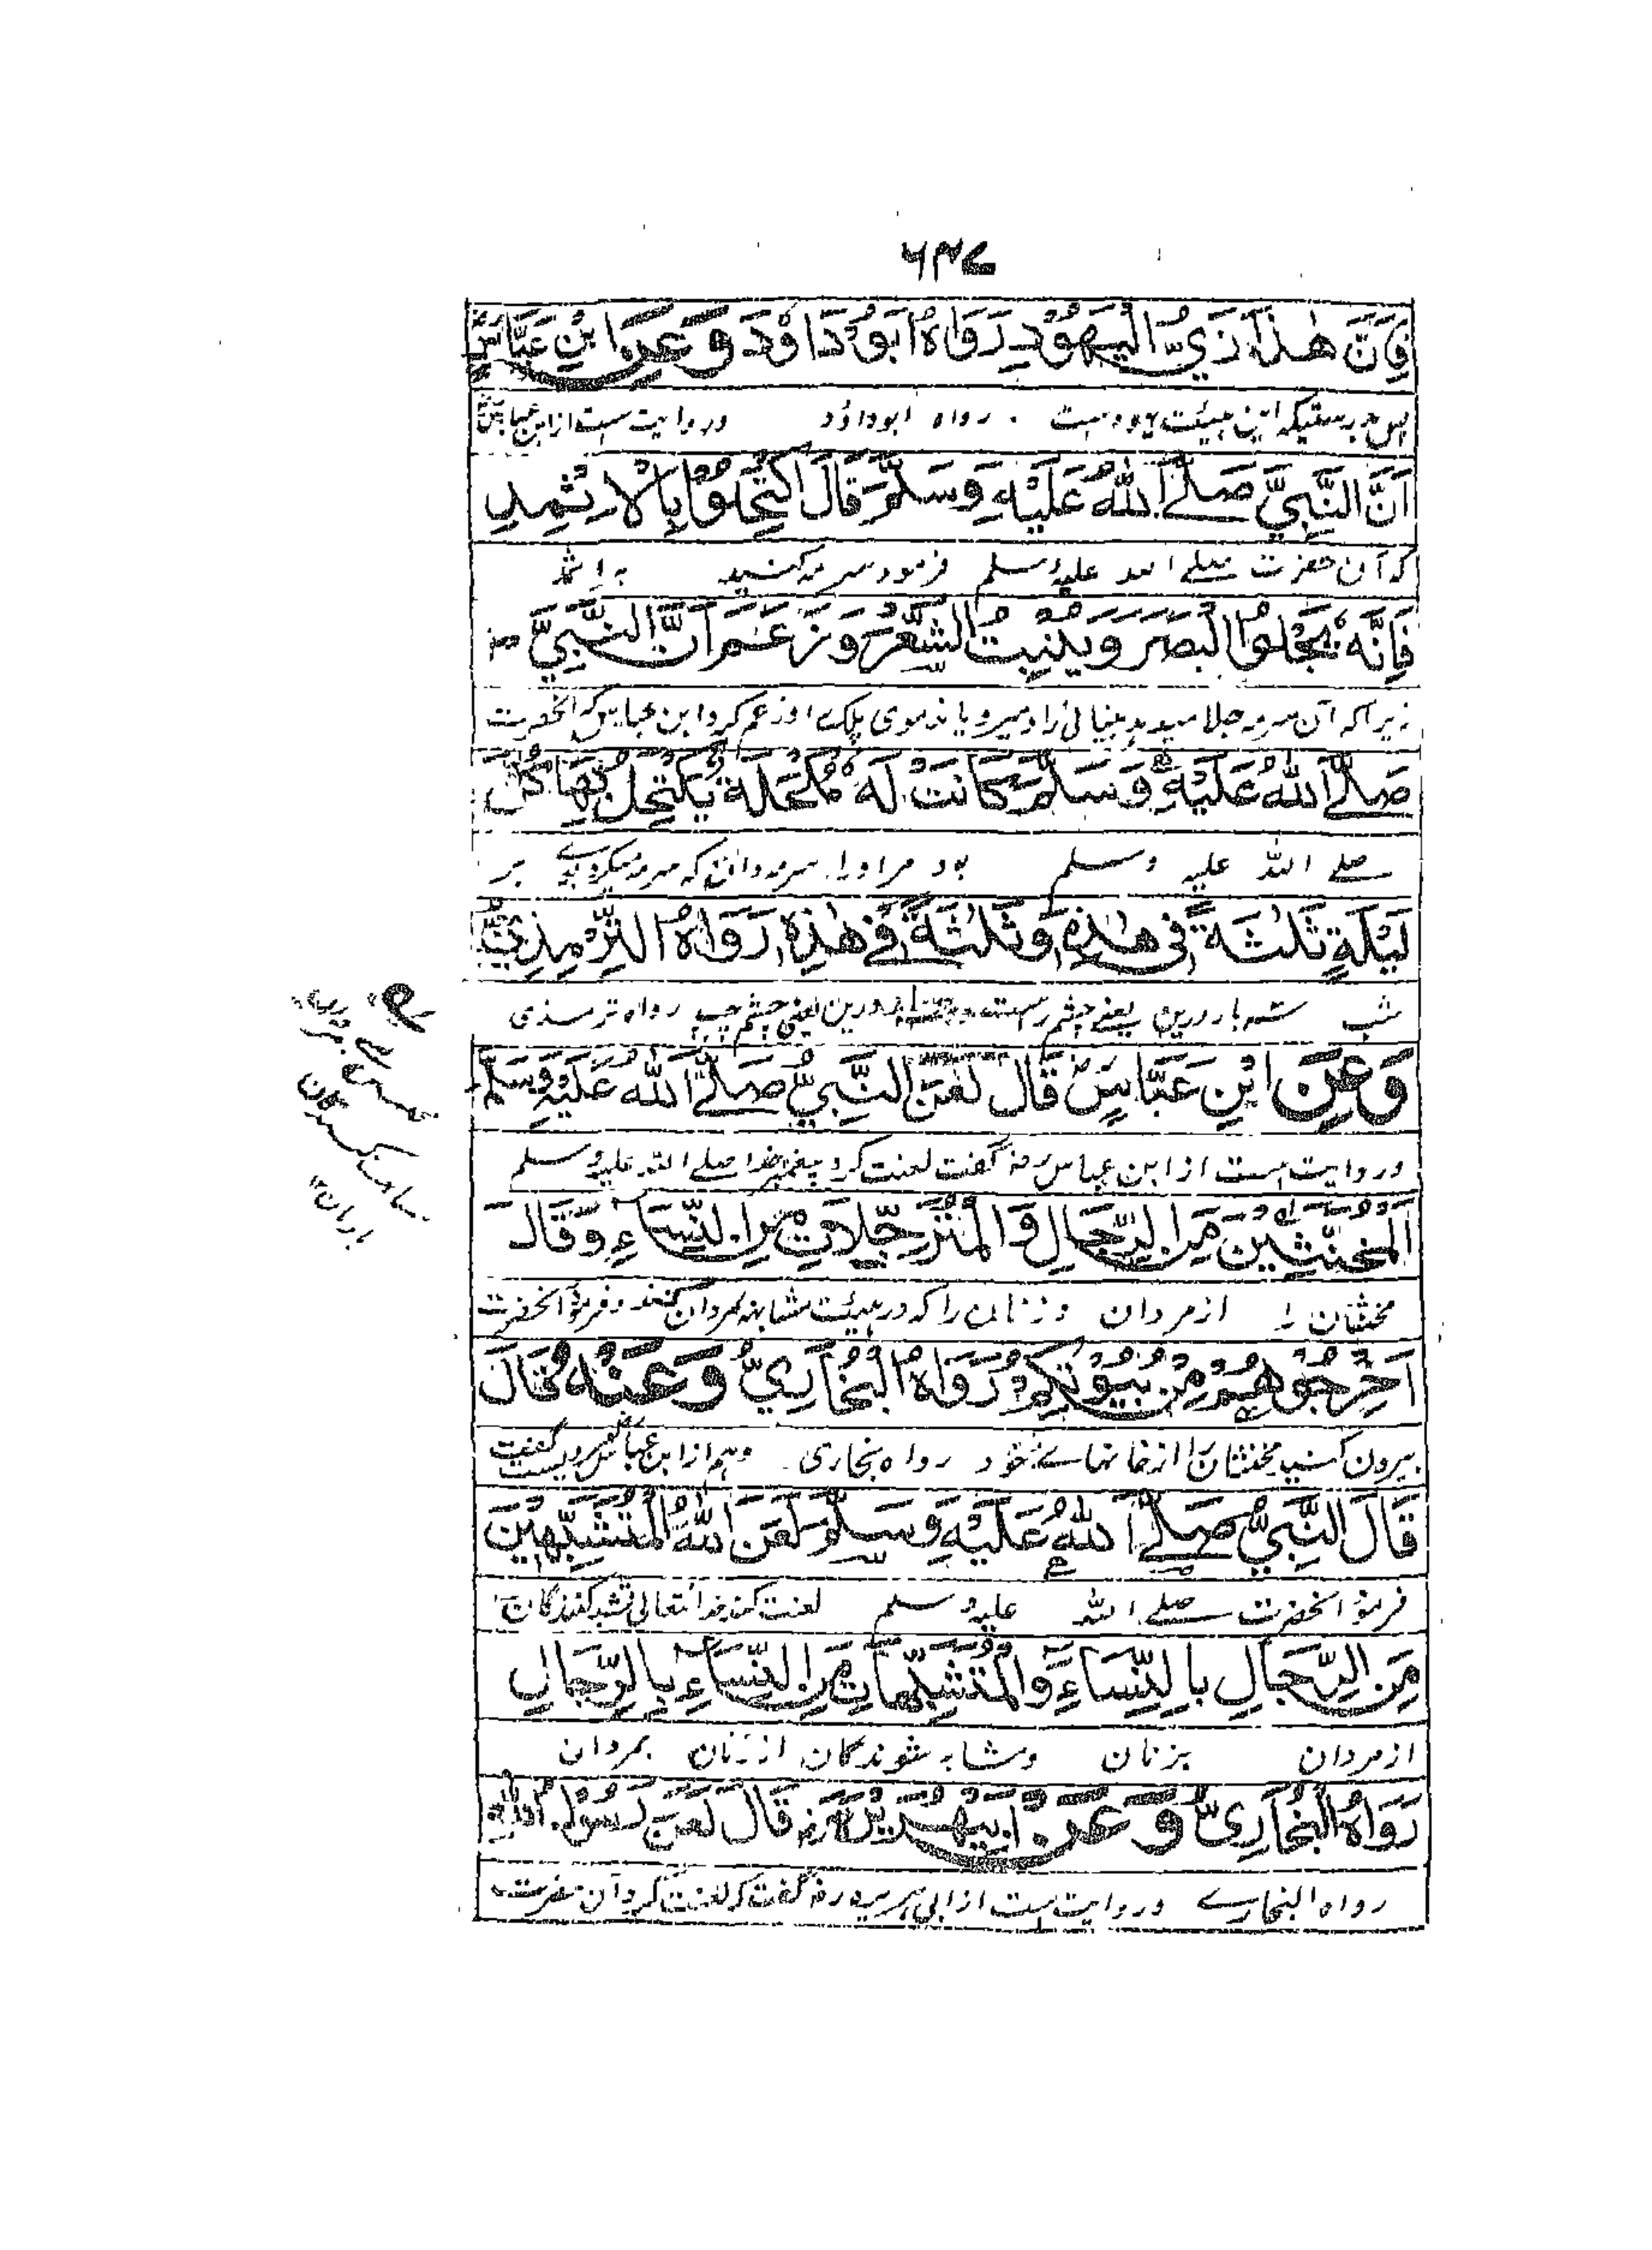 ۶۴۷
فَاِنَّ هٰذَا زِيُّ الْيَهُوْدِ رَوَاهُ اَبُوْدَاوٗدَ وَعَنِ ابْنِ عَبَّاسٍ
پس بدرستیکه این هیئت یهودست . رواه ابوداؤد وروایت ست از ابن عباس
اَنَّ النَّبِيَّ صَلَّے اللّٰهُ عَلَيْهِ وَسَلَّمَ قَالَ اكْتَحِلُوْا بِالْاِثْمِدِ
که آن حضرت صلے الله علیه وسلم فرمود سرمه کنید به اثمد
فَاِنَّهٗ يَجْلُوا الْبَصَرَ وَيُنْبِتُ الشَّعْرَ وَزَعَمَ اَنَّ النَّبِيَّ
زیراکه آن سرمه جلا میدهد بینائی را و میرویاند موی پلک را و زعم کرد ابن عباس که آنحضرت
صَلَّے اللّٰهُ عَلَيْهِ وَسَلَّمَ كَانَتْ لَهٗ مُكْحُلَةٌ يَكْتَحِلُ بِهَا كُلَّ
صلے الله علیه وسلم بود مر اورا سرمه دانی که سرمه میکرد بدے هر
لَيْلَةٍ ثَلٰثَةً فِي هٰذِهٖ وَثَلٰثَةً فِي هٰذِهٖ رَوَاهُ التِّرْمِذِيُّ
شب سه بار درین یعنے چشم راست و درین یعنی چشم چپ رواه ترمذی
وَعَنِ ابْنِ عَبَّاسٍ قَالَ لَعَنَ النَّبِيُّ صَلَّے اللّٰهُ عَلَيْهِ وَسَلَّمَ
وروایت ست از ابن عباس رض گفت لعنت کرد پیغمبر خدا صلے الله علیه وسلم
الْمُخَنَّثِيْنَ مِنَ الرِّجَالِ وَالْمُتَرَجِّلَاتِ مِنَ النِّسَاءِ وَقَالَ
مخنثان را از مردان و زنان را که در هیئت مشابه مردان کنند و فرمود آنحضرت
اَخْرِجُوْهُمْ مِنْ بُيُوْتِكُمْ رَوَاهُ الْبُخَارِيُّ وَعَنْهُ قَالَ
بیرون کنید مخنثان را از خانهاے خود رواه بخاری وهم از ابن عباس مرویست گفت
قَالَ النَّبِيُّ صَلَّے اللّٰهُ عَلَيْهِ وَسَلَّمَ لَعَنَ اللّٰهُ الْمُتَشَبِّهِيْنَ
فرمود آنحضرت صلے الله علیه وسلم لعنت کند خدا تعالی تشبه کنندگان
مِنَ الرِّجَالِ بِالنِّسَاءِ وَالْمُتَشَبِّهَاتِ مِنَ النِّسَاءِ بِالرِّجَالِ
از مردان بزنان ومشابه شوندگان از زنان بمردان
رَوَاهُ الْبُخَارِيُّ وَعَنْ اَبِيْ هُرَيْرَةَ رض قَالَ لَعَنَ رَسُوْلُ اللّٰهِ
رواه البخارے وروایت ست از ابی هریره رض گفت که لعنت کرد آن حضرت